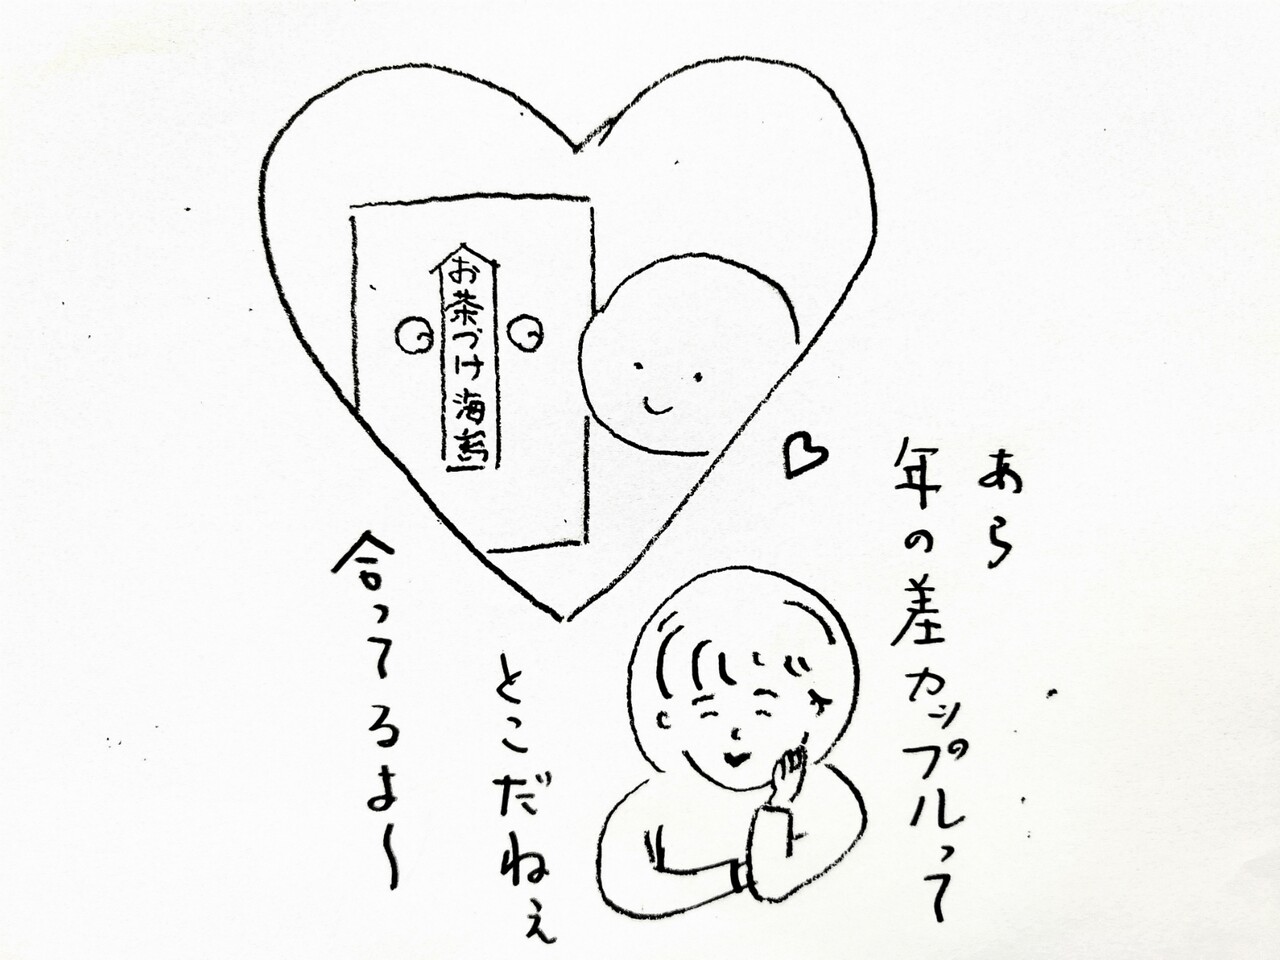 あら
年の差カップルって
とこだねぇ
合ってるよ〜
お茶づけ海苔